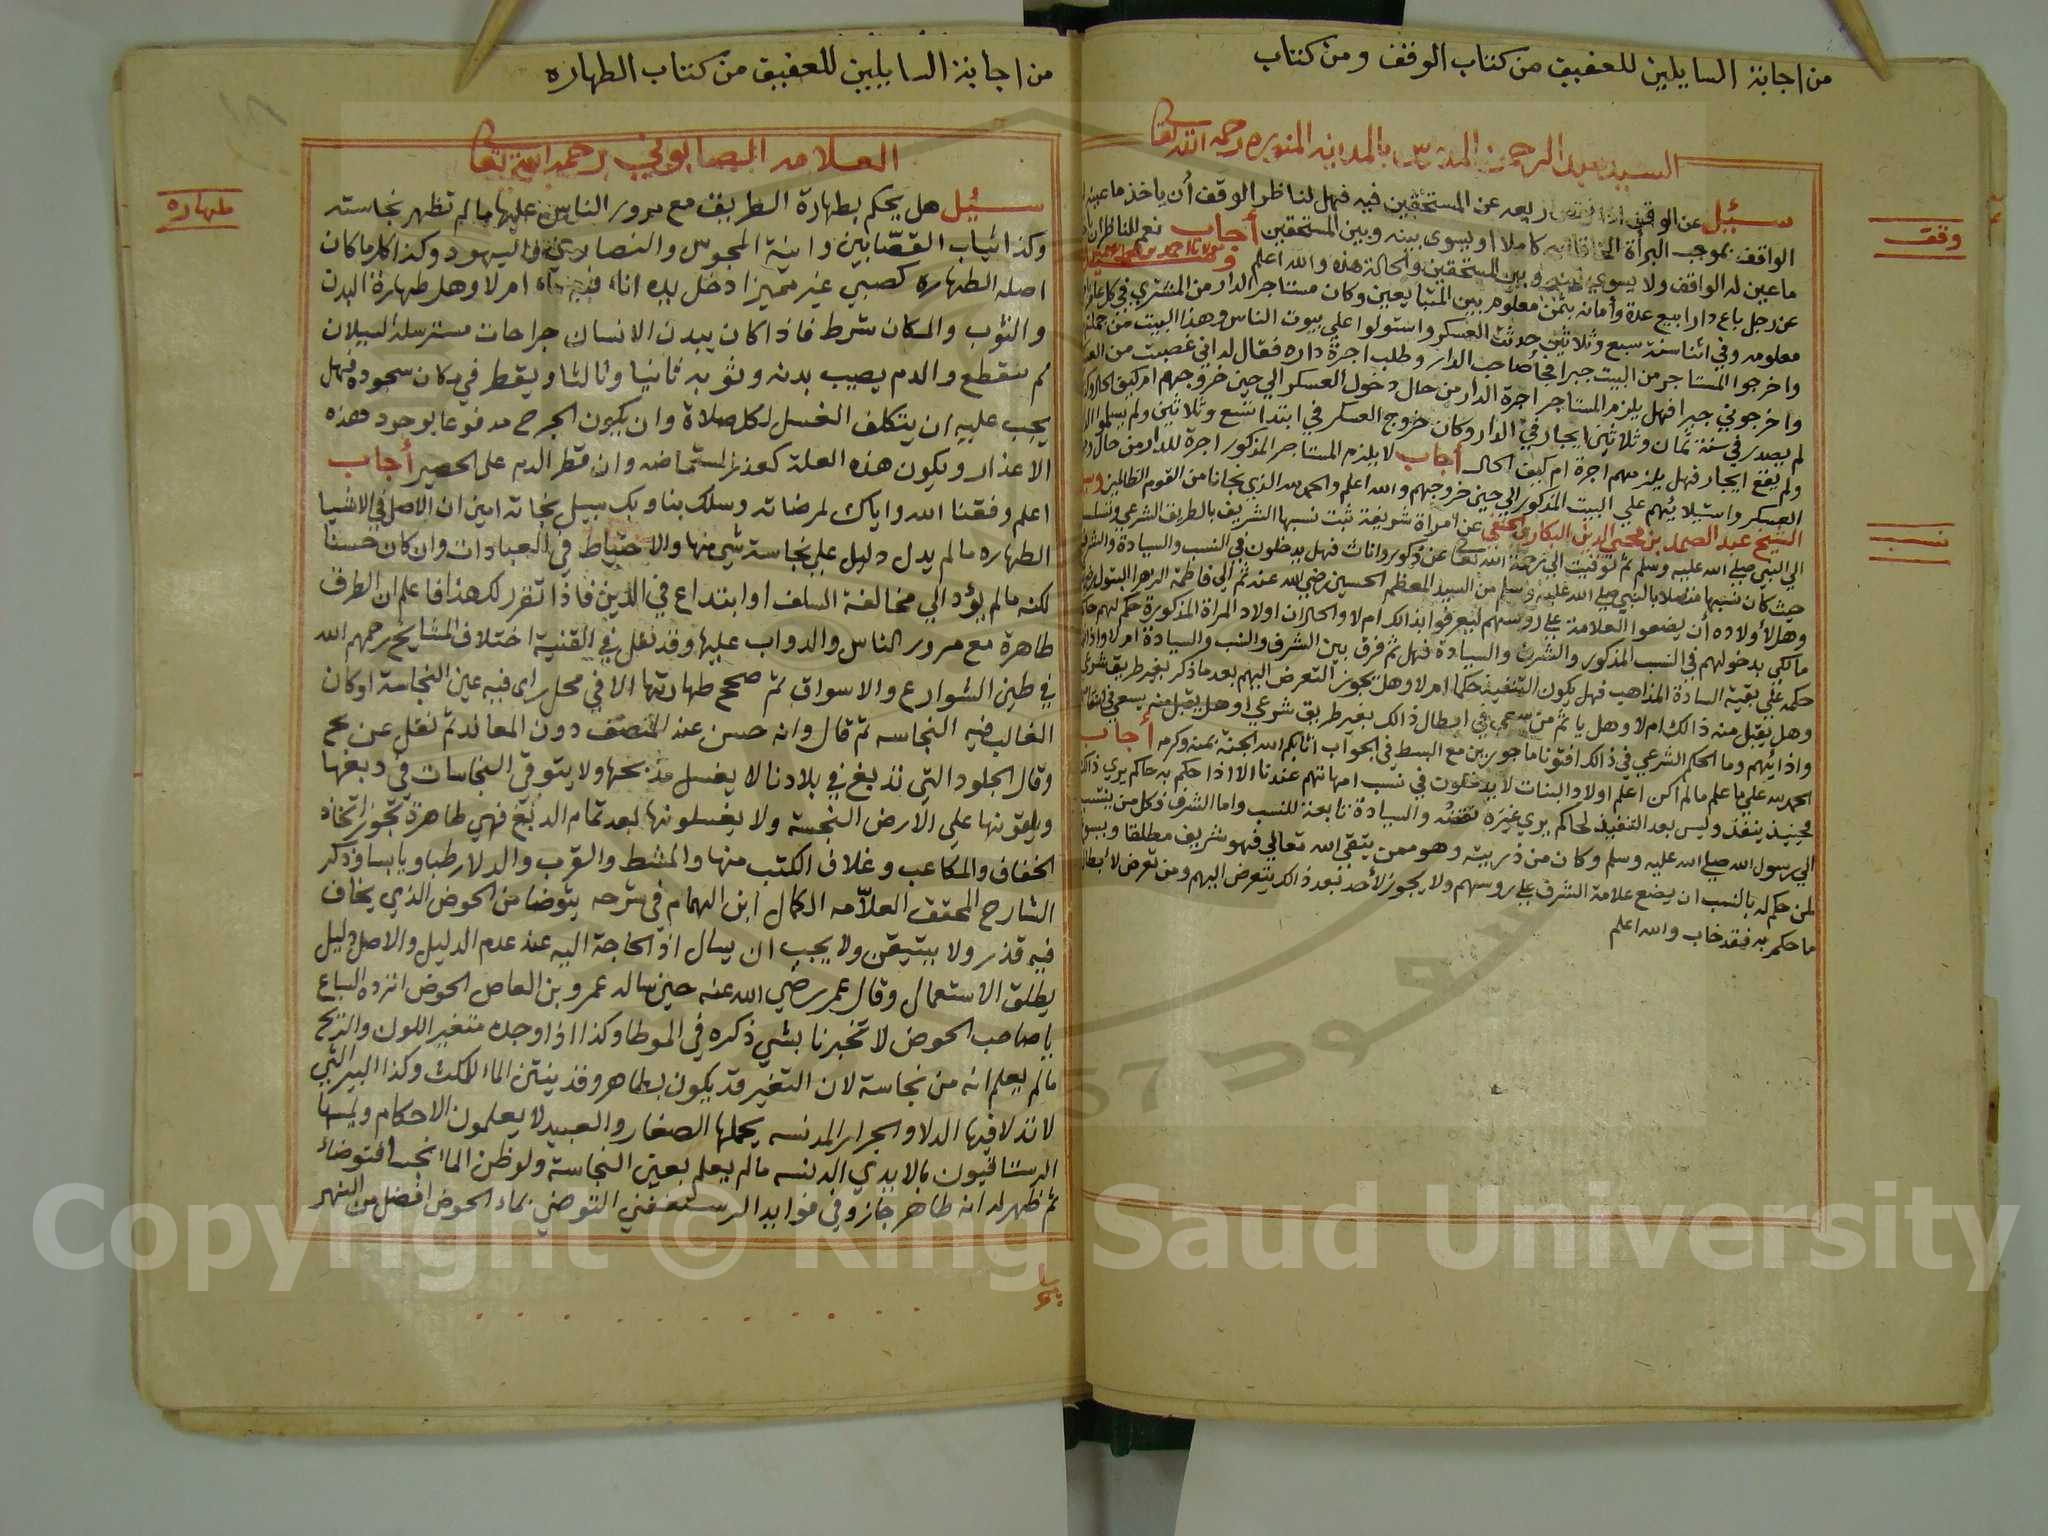 من اجابة السايلين للعفيف من كتاب الوقف ومن كتاب
السيد عبد الرحمن المدرس بالمدينه المنوره رحمه الله تعا
وقف
سئل عن الوقف اذا نقص ريعه عن المستحقين فيه فهل لناظر الوقف أن ياخذ ما عينه
الواقف بموجب البرأة كاملا او يسوى بينه وبين المستحقين أجاب نعم للناظر ان
ما عين له الواقف ولا يسوي بينه وبين المستحقين والحالة هذه والله اعلم
عن رجل باع دارا بيع عدة وأمانه بثمن معلوم بين المتبايعين وكان مستاجر الدار من المشتري في كل عام
معلومه وفي اثنا سنة سبع وثلاثين حدثت العسكر واستولوا علي بيوت الناس وهذا البيت من جملة
واخرجوا المستاجر من البيت جبرا فجأ صاحب الدار وطلب اجرة داره فقال له اني غصبت من
واخرجوني جبرا فهل يلزم المستاجر اجرة الدار من حال دخول العسكر الي حين خروجهم ام كيف الحال
لم يصدر في سنة ثمان وثلاثين ايجار في الدار وكان خروج العسكر في ابتدا تسع وثلاثين ولم يسلموا
ولم يقع ايجار فهل يلزمهم اجرة ام كيف الحال أجاب لا يلزم المستاجر المذكور اجرة للدار من حال
العسكر واستيلايهم علي البيت المذكور الي حين خروجهم والله اعلم والحمد لله الذي نجانا من القوم الظالمين
نسب
الشيخ عبد الصمد بن محيي الدين البكاري الحنفي عن امراة شريفة ثبت نسبها الشريف بالطريق الشرعي
الي النبي صلي الله عليه وسلم ثم توفيت الي رحمة الله تعا عن ذكور واناث فهل يدخلون في النسب والسيادة والشرف
حيث كان نسبها متصلا بالنبي صلي الله عليه وسلم من السيد المعظم الحسين رضي الله عنه ثم الي فاطمة الزهرا البتول
وهل لأولاده أن يضعوا العلامة علي روسهم ليعرفوا بذالك ام لا والحال ان اولاد المراة المذكورة حكم لهم
مالكي بدخولهم في النسب المذكور والشرف والسيادة فهل ثم فرق بين الشرف والنسب والسيادة ام لا واذا
حكمه علي بقية السادة المذاهب فهل يكون التنفيذ حكما ام لا وهل يجوز التعرض اليهم بعد ما ذكر بغير طريق
وهل يقبل منه ذالك ام لا وهل ياثم من سعي في ابطال ذالك بغير طريق شرعي او هل يقبل منه يسعي في
واذايتهم وما الحكم الشرعي في ذالك افتونا ماجورين مع البسط في الجواب اثابكم الله الجنة بمنه وكرمه أجاب
الحمد لله علي ما علم مالم اكن اعلم اولاد البنات لا يدخلون في نسب امهاتهم عندنا الا اذا حكم به حاكم يري ذالك
فحينيذ ينفذ وليس بعد التنفيذ لحاكم يري غيره نقضه والسيادة تابعة للنسب واما الشرف فكل من ينتسب
الي رسول الله صلي الله عليه وسلم وكان من ذريته وهو ممن يتقي الله تعالي فهو شريف مطلقا
لمن حكم له بالنسب ان يضع علامة الشرف علي روسهم ولا يجوز لأحد بعد ذالك يتعرض اليهم ومن تعرض لأبطال
ما حكم به فقد خاب والله اعلم
من اجابة السايلين للعفيف من كتاب الطهاره
العلامه الصابوني رحمه الله تعا
طهاره
سئل هل يحكم بطهارة الطريق مع مرور الناس عليها مالم تظهر نجاسته
وكذا ثياب القصّابين وانية المجوس والنصاري واليهود وكذا كل ما كان
اصله الطهاره كصبي غير مميز ادخل يده اناء فيه ماء ام لا وهل طهارة البدن
والثوب والمكان شرط فاذا كان ببدن الانسان جراحات مسترسلة السيلان
لم ينقطع والدم يصيب بدنه وثوبه ثانيا وثالثا ويقطر في مكان سجوده فهل
يجب عليه ان يتكلف الغسل لكل صلاة وان يكون الجرح مدفوعا بوجود هذه
الاعذار ويكون هذه العلة كعذر المستحاضه وان قطر الدم على الحصير أجاب
اعلم وفقنا الله واياك لمرضاته وسلك بنا وبك سبيل نجاته امين ان الاصل في الاشيا
الطهاره مالم يدل دليل علي نجاسة شي منها والاحتياط في العبادات وان كان حسنا
لكنه مالم يؤد الي مخالفة السلف او ابتداع في الدين فاذا تقرر لك هذا فاعلم ان الطرق
طاهرة مع مرور الناس والدواب عليها وقد نقل في القنية اختلاف المشايخ رحمهم الله
في طين الشوارع والاسواق ثم صحح طهارتها الا في محل راى فيه عين النجاسة او كان
الغالب فيه النجاسه ثم قال وانه حسن عند المنصف دون المعاند ثم نقل عن مح
وقال الجلود التي تدبغ في بلادنا لا يغسل مذبحها ولا يتوقى النجاسات في دبغها
ويلقونها علي الارض النجسة ولا يغسلونها بعد تمام الدبغ فهي طاهرة تجوز اتخاذ
الخفاف والمكاعب وغلاف الكتب منها والمشط والقرب والدلا رطبا ويابسا وذكر
الشارح المحقق العلاّمه الكمال ابن الهمام في شرحه يتوضا من الحوض الذي يخاف
فيه قذر ولا يتيقن ولا يجب ان يسال اذ الحاجة اليه عند عدم الدليل والاصل دليل
يطلق الاستعمال وقال عمر رضي الله عنه حين سال عمرو بن العاص الحوض اترده السباع
ياصاحب الحوض لا تخبرنا بشي ذكره في الموطا وكذا اذا وجده متغير اللون والريح
مالم يعلم انه من نجاسة لان التغير قد يكون بطاهر وقد ينتن الما للمكث وكذا البير التي
لا تدلا فيها الدلا والجرار المدنسه يحملها الصغار والعبيد لا يعلمون الاحكام ويمسها
الرستاقيون بالايدي الدنسه مالم يعلم بعين النجاسة ولو ظن الما نجسا فتوضأ
ثم ظهر له انه طاهر جاز وفي فوايد الرستغفني التوضي بماء الحوض افضل من النهر
Copyright © King Saud University